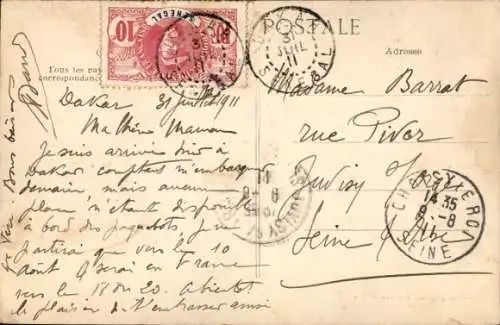 POSTALE
Adresse
Tous les pays
correspondance
10 SENEGAL 10
31 JUIL 11
SÉNÉGAL
Dakar 31 Juillet 1911
Ma Chère Maman
Je suis arrivé hier à
Dakar comptant m'embarquer
demain mais aucune
place n'étant disponible
à bord des paquebots, je ne
partirai que vers le 10
août & serai en France
vers le 18 ou 20. a bientôt
le plaisir de t'embrasser aussi
Bons baisers
Madame Barrat
rue Pivor
Juvisy s/ Orge
Seine & Oise
14 35
8 - 8
11
SEINE